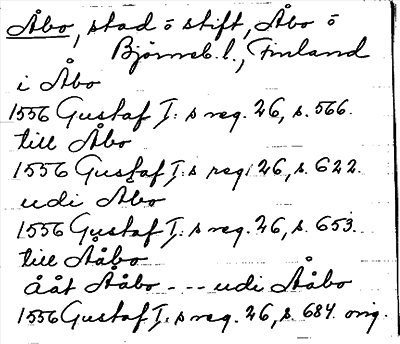 Åbo, stad o stift, Åbo o
Björneb. l., Finland
i Åbo
1556 Gustaf I:s reg. 26, s. 566.
till Åbo
1556 Gustaf I:s reg. 26, s. 622.
udi Åbo
1556 Gustaf I:s reg. 26, s. 653.
till Ååbo
ååt Ååbo --- udi Ååbo
1556 Gustaf I:s reg. 26, s. 684. orig.